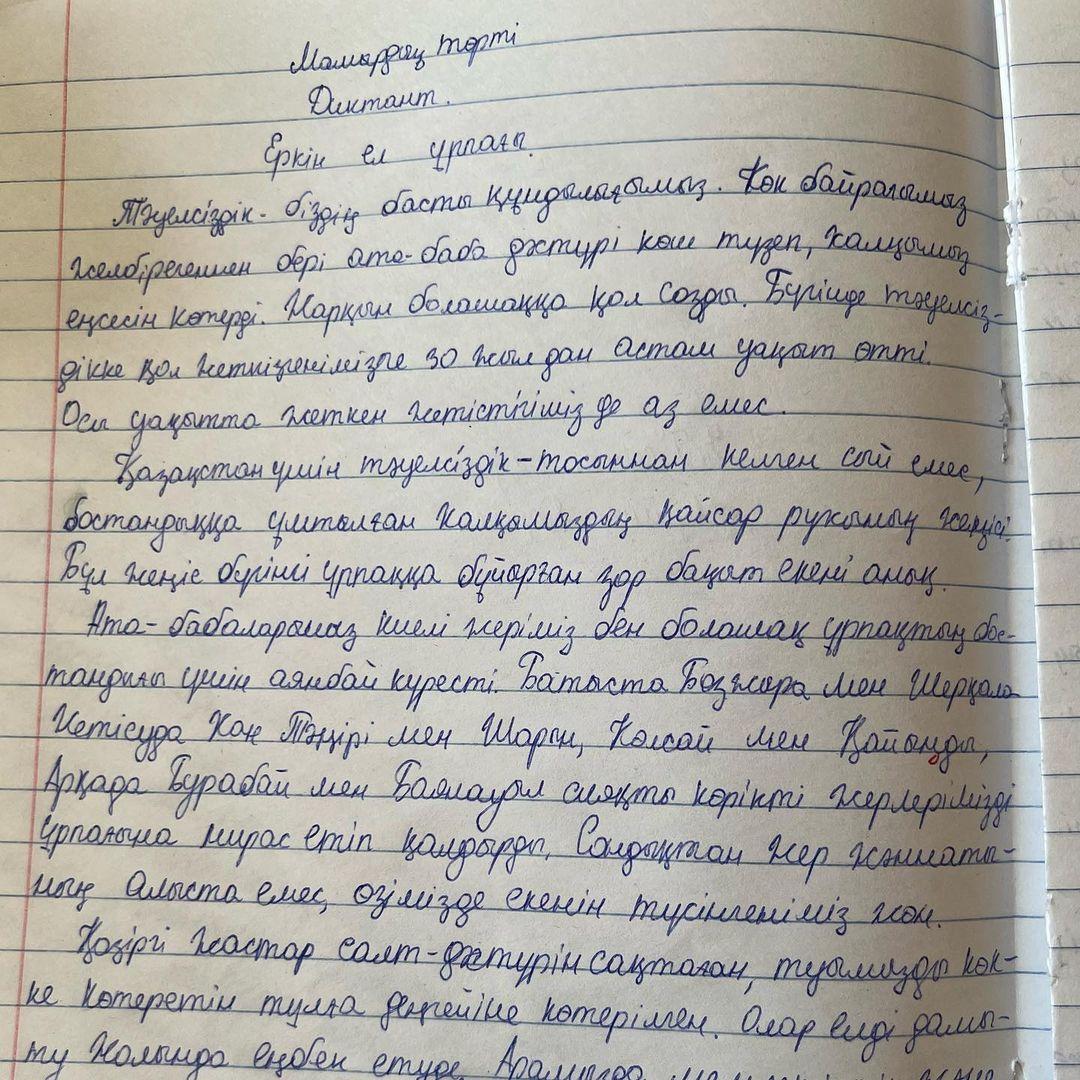 Мамырдың төрті
Диктант.
Еркін ел ұрпағы.
Тәуелсіздік- біздің басты құндылығымыз. Көк байрағымыз
желбірегеннен бері ата-баба дәстүрі көш түзеп, халқымыз
еңсесін көтерді. Жарқын болашаққа қол созды. Бүгінде тәуелсіз-
дікке қол жеткізгенімізге 30 жылдан астам уақыт өтті.
Осы уақытта жеткен жетістігіміз де аз емес.
Қазақстан үшін тәуелсіздік-тосыннан келген сый емес,
бостандыққа ұмтылған халқымыздың қайсар рухының жеңісі.
Бұл жеңіс бүгінгі ұрпаққа бұйырған зор бақыт екені анық.
Ата-бабаларымыз киелі жеріміз бен болашақ ұрпақтың бос-
тандығы үшін аянбай күресті. Батыста Бозжыра мен Шерқала
Жетісуда Хан Тәңірі мен Шарын, Көлсай мен Қайыңды,
Арқада Бурабай мен Баянауыл сияқты көрікті жерлерімізді
ұрпағына мирас етіп қалдырды. Сондықтан жер жәннаты-
ның алыста емес, өзімізде екенін түсінгеніміз жөн.
Қазіргі жастар салт-дәстүрін сақтаған, туымызды көк-
ке көтеретін тұлға деңгейіне көтерілген. Олар елді дамы-
ту жолында еңбек етуде.